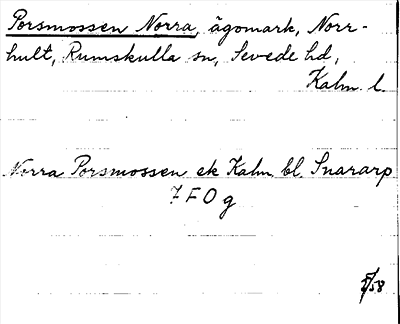 Porsmossen Norra, ägomark, Norr-
hult, Rumskulla sn, Sevede hd,
Kalm. l.
Norra Porsmossen ek Kalm bl. Snararp
7 F 0 g
/58